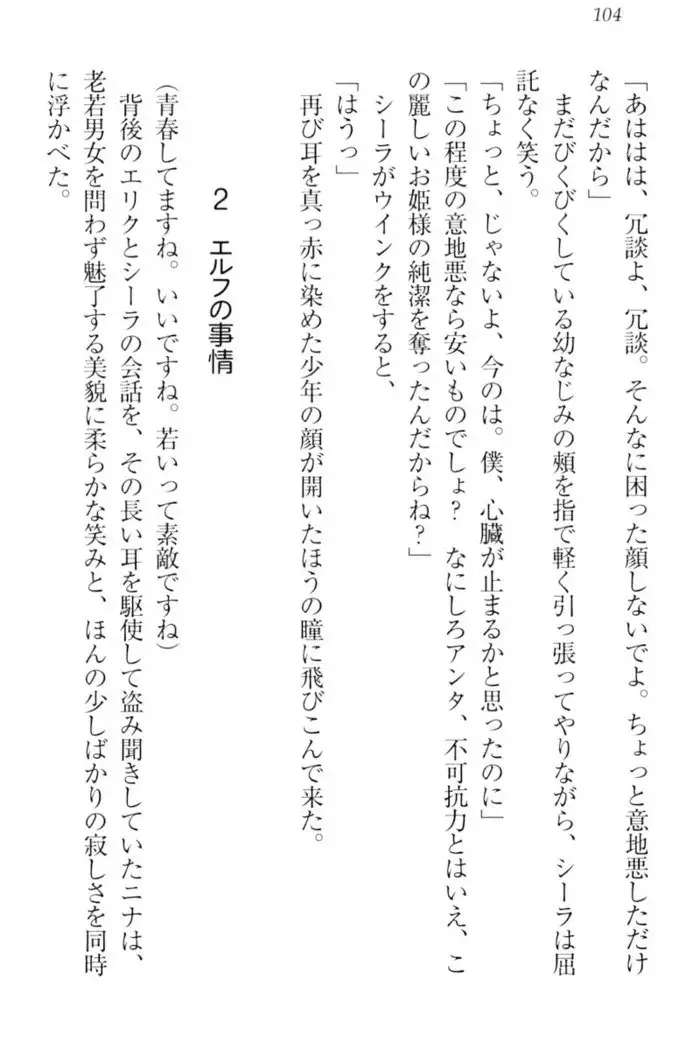 104
「あははは、冗談よ、冗談。そんなに困った顔しないでよ。ちょっと意地悪しただけ
なんだから」
まだびくびくしている幼なじみの頬を指で軽く引っ張ってやりながら、シーラは屈
託なく笑う。
「ちょっと、じゃないよ、今のは。僕、心臓が止まるかと思ったのに」
「この程度の意地悪なら安いものでしょ？　なにしろアンタ、不可抗力とはいえ、こ
の麗しいお姫様の純潔を奪ったんだからね？」
シーラがウインクをすると、
「はうっ」
再び耳を真っ赤に染めた少年の顔が開いたほうの瞳に飛びこんで来た。
2　エルフの事情
(青春してますね。いいですね。若いって素敵ですね)
背後のエリクとシーラの会話を、その長い耳を駆使して盗み聞きしていたニナは、
老若男女を問わず魅了する美貌に柔らかな笑みと、ほんの少しばかりの寂しさを同時
に浮かべた。